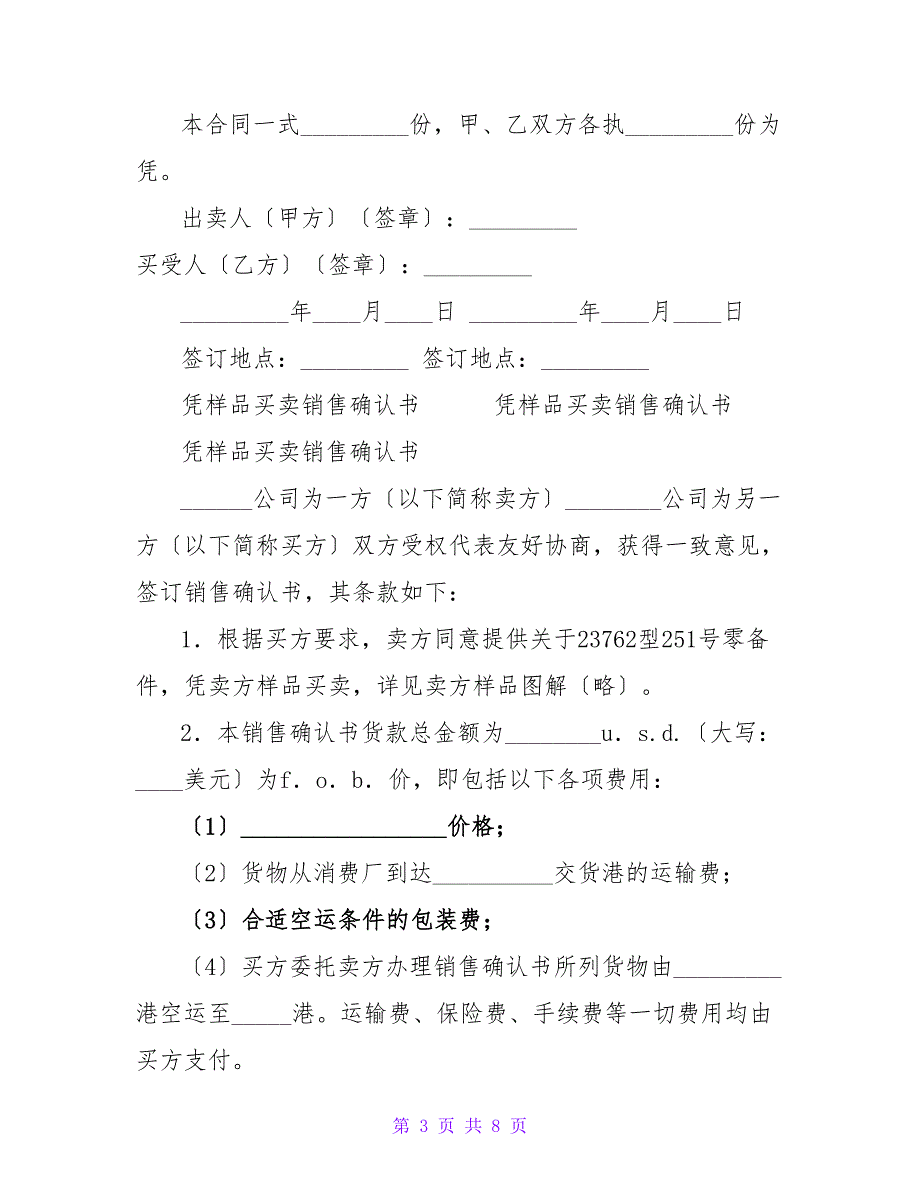 本合同一式_________份，甲、乙双方各执_________份为
凭。
出卖人〔甲方〕〔签章〕：_________
买受人〔乙方〕〔签章〕：_________
_________年____月____日 _________年____月____日
签订地点：_________ 签订地点：_________
凭样品买卖销售确认书 凭样品买卖销售确认书
凭样品买卖销售确认书
______公司为一方〔以下简称卖方〕________公司为另一
方〔以下简称买方〕双方受权代表友好协商，获得一致意见，
签订销售确认书，其条款如下：
1．根据买方要求，卖方同意提供关于23762型251号零备
件，凭卖方样品买卖，详见卖方样品图解〔略〕。
2．本销售确认书货款总金额为________u．s.d.〔大写：
____美元〕为f．o．b．价，即包括以下各项费用：
〔1〕_________________价格；
〔2〕货物从消费厂到达__________交货港的运输费；
〔3〕合适空运条件的包装费；
〔4〕买方委托卖方办理销售确认书所列货物由_________
港空运至_____港。运输费、保险费、手续费等一切费用均由
买方支付。
第 3 页 共 8 页